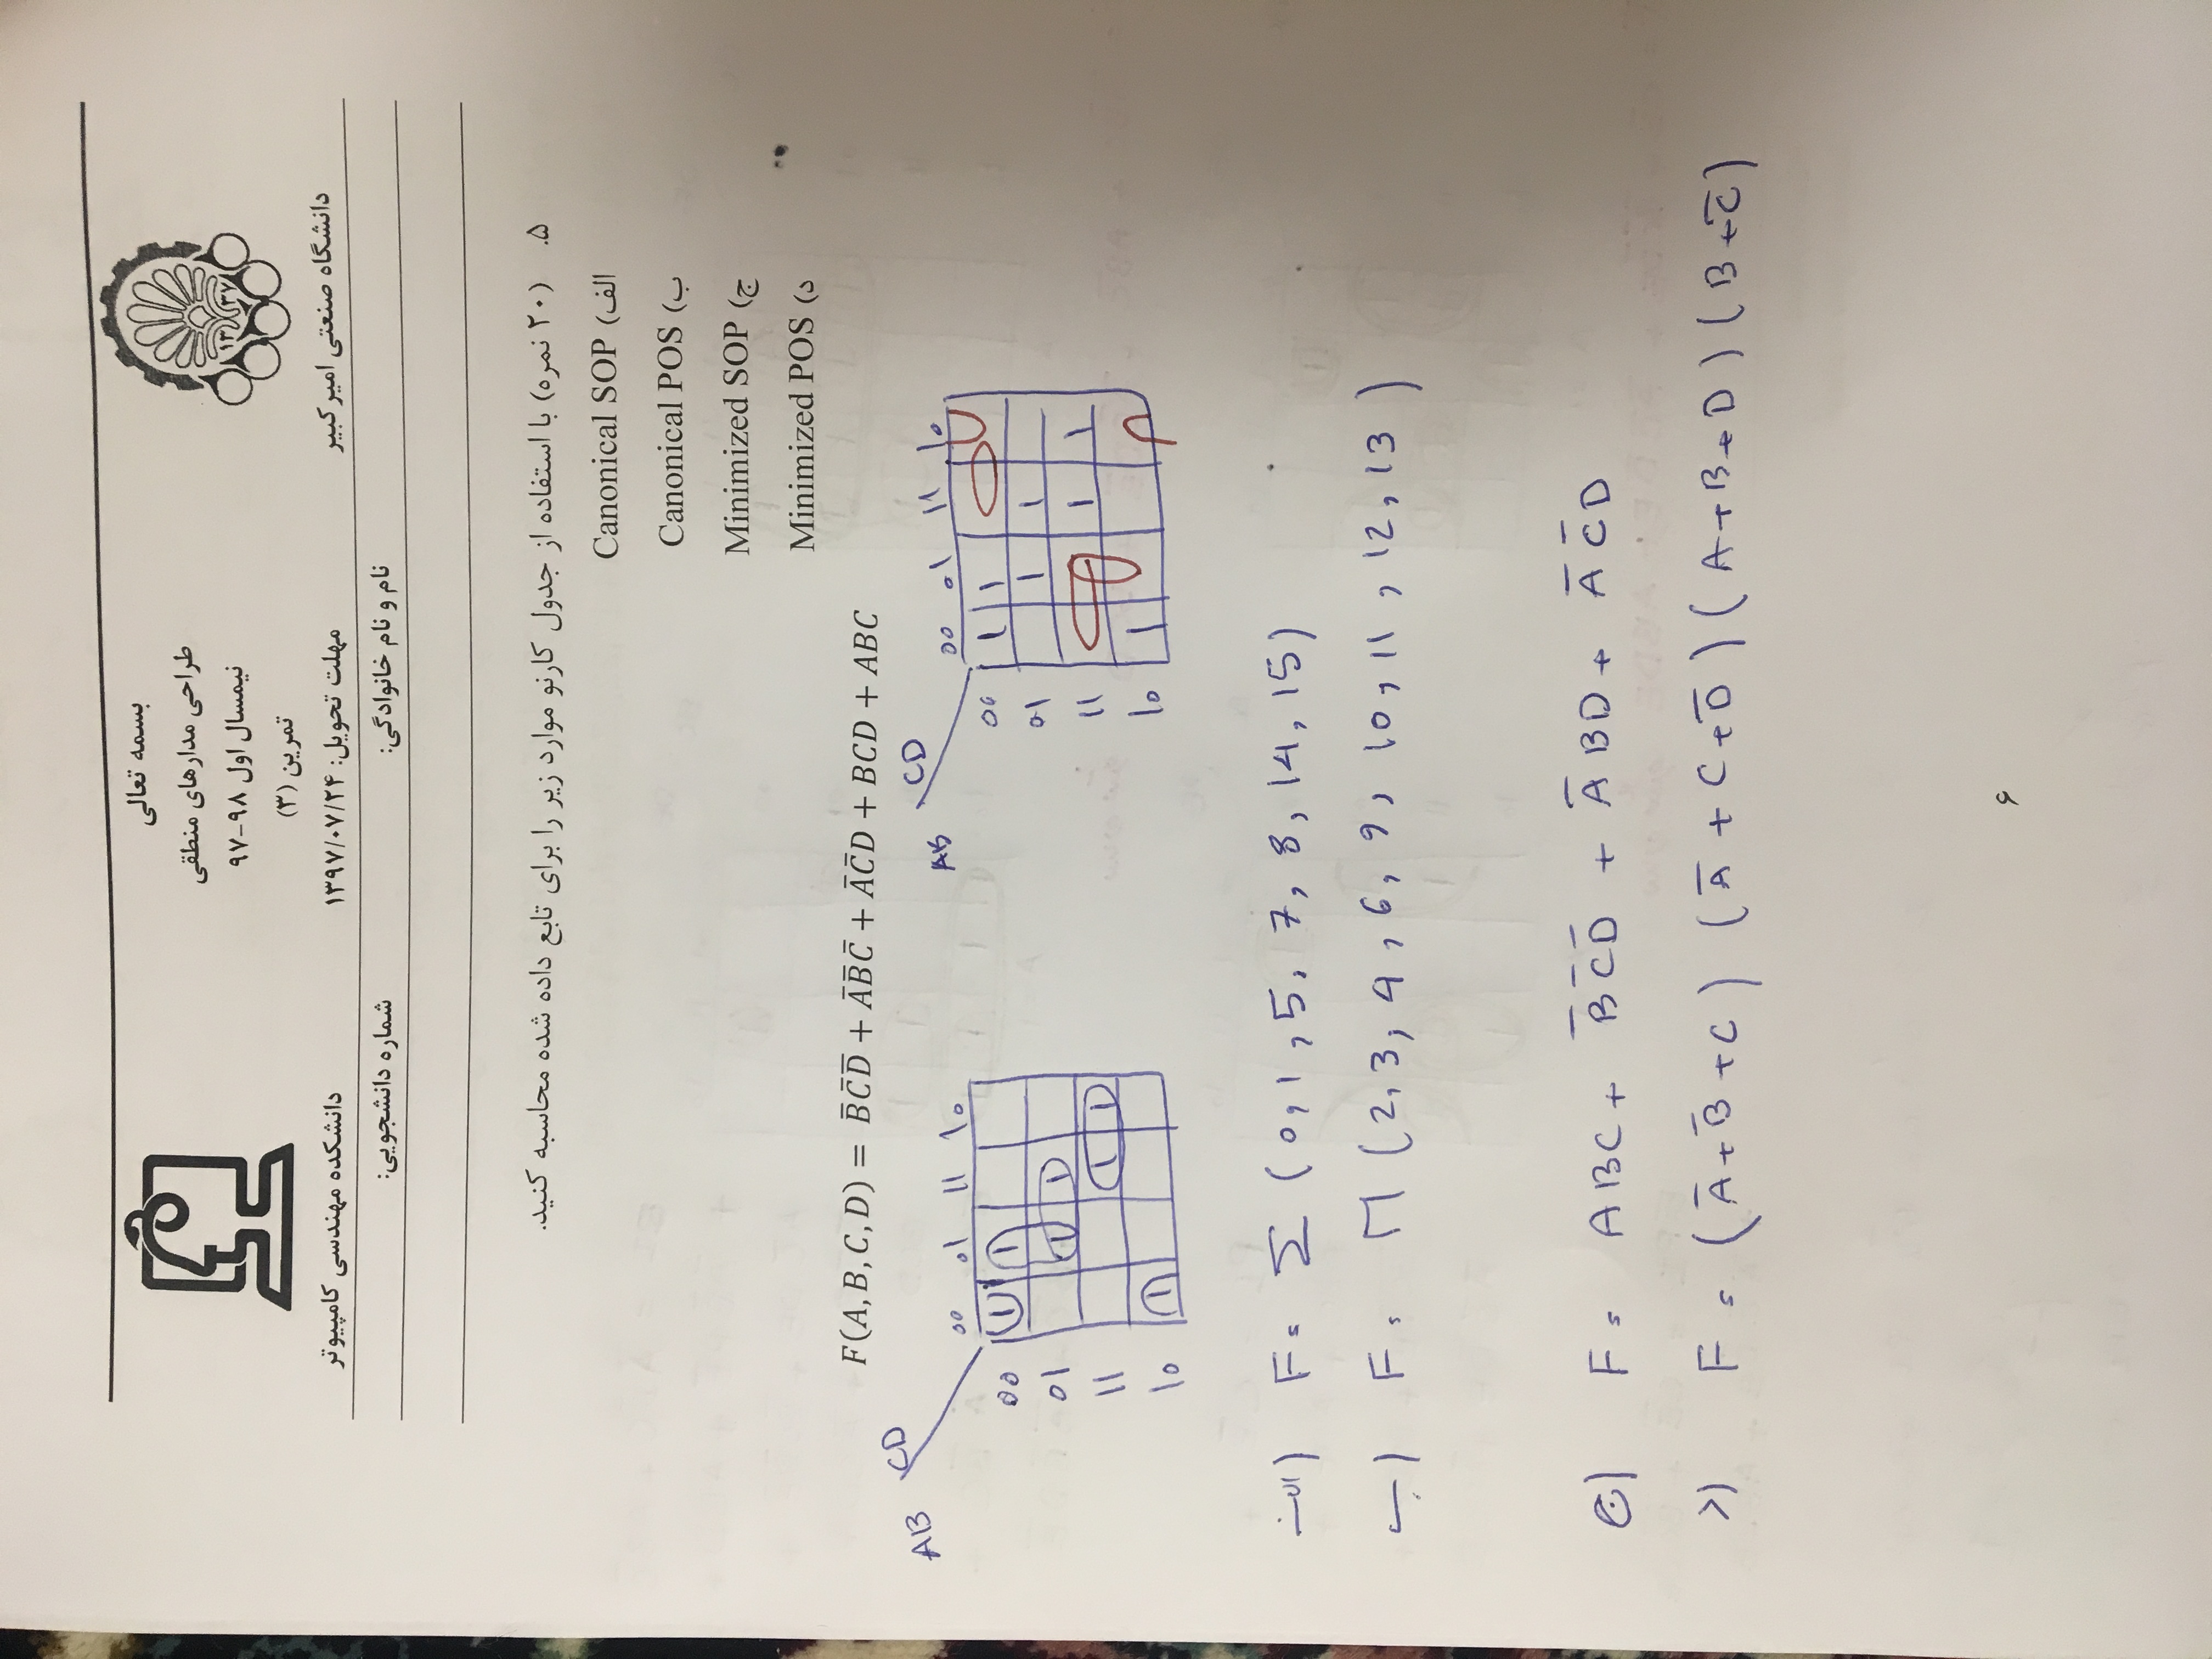 بسمه تعالی
طراحی مدارهای منطقی
نیمسال اول ۹۸-۹۷
تمرین (۳)
مهلت تحویل: ۱۳۹۷/۰۷/۲۴
۱۳ ۳۷
دانشگاه صنعتی امیرکبیر
دانشکده مهندسی کامپیوتر
نام و نام خانوادگی: شماره دانشجویی:
۵. (۲۰ نمره) با استفاده از جدول کارنو موارد زیر را برای تابع داده شده محاسبه کنید.
الف) Canonical SOP
ب) Canonical POS
ج) Minimized SOP
د) Minimized POS
F(A,B,C,D) = B̄C̄D̄ + ĀB̄C̄ + ĀC̄D + BCD + ABC
AB CD
00 01 11 10
00 1 1
01 1 1
11 1 1
10 1
AB CD
00 01 11 10
00 1 1
01 1 1
11 1 1
10 1
الف) F = Σ (0, 1, 5, 7, 8, 14, 15)
ب) F = Π (2, 3, 4, 6, 9, 10, 11, 12, 13)
ج) F = ABC + B̄C̄D̄ + ĀBD + ĀC̄D
د) F = (Ā+B̄+C) (Ā+C+D̄) (A+B+D) (B+C̄)
۶